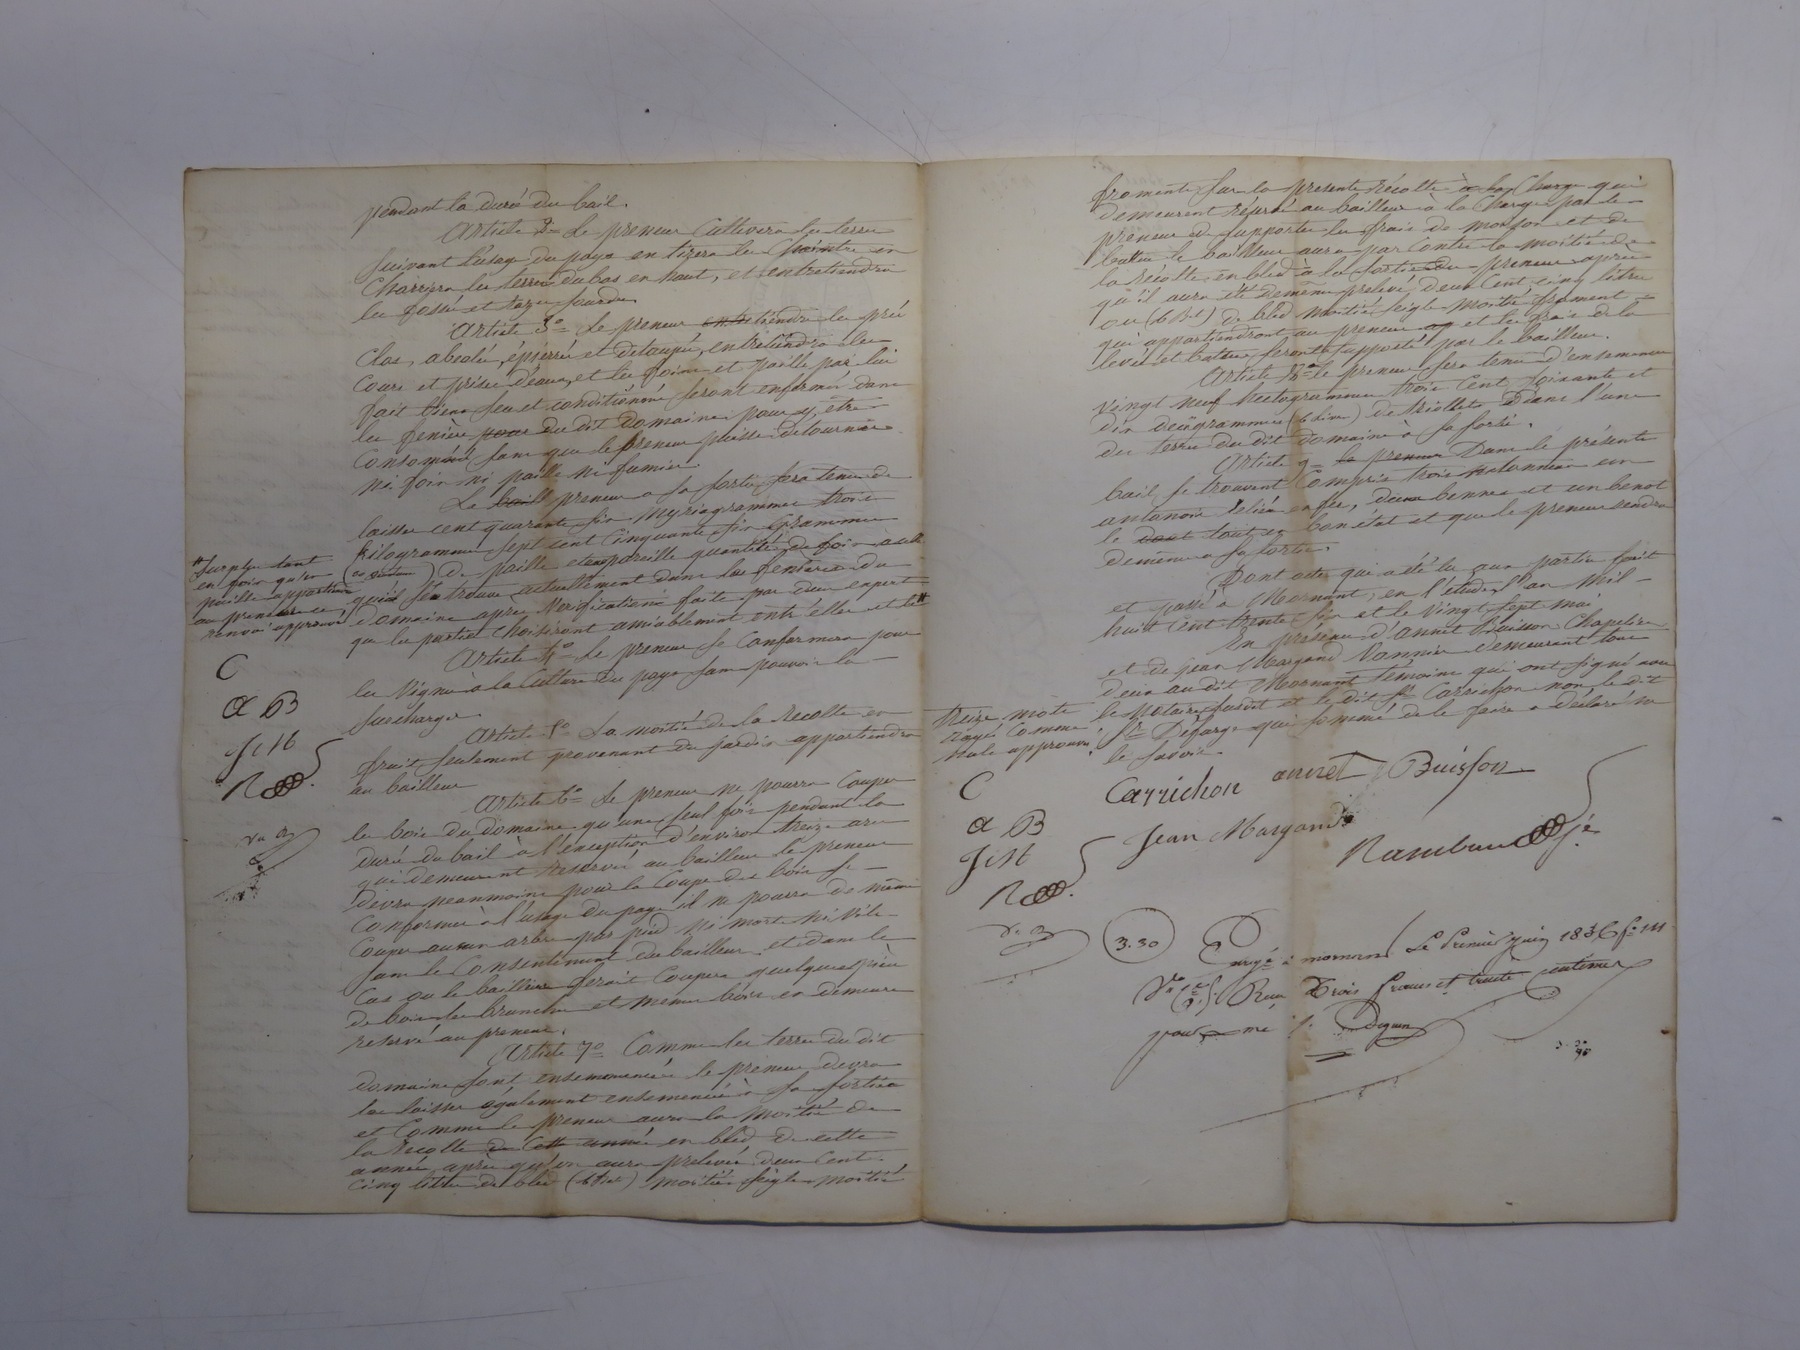 pendant la durée du bail.
Article 2º Le preneur Cultivera les terres
suivant l'usage du pays en tirera les Chaintre en
Charriera les terres du bas en haut, et entretiendra
les fossés et razes sourdes
Article 3º Le preneur entretiendra les prés
Clos, abealés, épierrés et détaupés, entretiendra les
Cours et prises d'eaux, et les foins et paille par lui
fait bien sec et conditionné seront enfermés dans
les fenière pour du dit domaine pour y, etre
Consommé sans que le preneur puisse detourner
ni foin ni paille ni fumier.
Le baill preneur a sa sortie sera tenu de
laisser cent quarante six Myriagrammes trois
kilogrammes sept cent Cinquante six Grammes
de paille et pareille quantité de foin
qui se trouve actuellement dans les fenières du
domaine apres Verifications faite par deux expert
que les parties Choisiront amiablement entr'elles et le #
# Surplus tant
en foin qu'en
paille appartien
au preneur ce
renvoi approuvé
Article 4º Le preneur se Conformera pour
les Vignes à la Culture du pays sans pouvoir les
surcharger.
Article 5º La moitié de la recolte en
fruit seulement provenant du jardin appartiendra
au bailleur
C
a B
J M
R
Article 6º Le preneur ne pourra Couper
les bois du domaine qu'une seul fois pendant la
duré du bail à l'exception d'environ treize ares
qui demeurent reservé au bailleur le preneur
devra neanmoins pour la Coupe des bois se
Conformer à l'usage du pays il ne pourra de même
Couper aucun arbre par pied ni morts ni vifs
sans le Consentement du bailleur et dans le
Cas ou le bailleur ferait Couper quelques pièces
de bois les branches et menus bois en demeure
reservé au preneur.
Article 7º Comme les terres du dit
domaine sont ensemencées le preneur devra
les laisser également ensemencées à sa sortie
et Comme le preneur aura la moitié de
la recolte de Cette année en bled de cette
année après qu'on aura prelevé deux Cent
cinq litres de bled moitié seigle moitié
froments sur la presente récolte à la Charge qui
demeurent réservé au bailleur à la Charge par le
preneur de supporter les frais de moisson et de
battre le bailleur aura par contre la moitié de
la récolte en bled à la sortie du preneur après
qu'il aura été demême prelevé deux Cent cinq litres
de bled moitié seigle moitié froment
qui appartiendront au preneur et les frais de la
levé et battre seront supporté par le bailleur.
Article 8º le preneur sera tenu d'ensemencer
vingt neuf hectogrammes trois Cent soixante et
dix decigrammes de triollets dans l'une
des terres du dit domaine à sa sortie.
Article 9º le preneur Dans le présent
bail se trouvent Compris trois tonneaux un
antonnoir reliés en fer, deux bennes et un benot
le tout en bon état et que le preneur rendra
demême a sa sortie.
Dont acte, qui a été lu aux parties fait
et passé a Mornant, en l'étude, l'an Mil
huit Cent trente six et le vingt sept mai
En présence d'annet Buisson Chapelier
et de jean Margand Vannier demeurant tous
deux au dit Mornant témoins qui ont signé avec
le Notaire susdit et le dit Sr Carrichon non le dit
Sr Défarge qui sommé de le faire a déclaré ne
le savoir.
treize mots
rayés Comme
Nuls approuvé
Carrichon annet Buisson
C
a B
J M
R
Jean Margand
3.30
Enregé à mornant Le Premier Juin 1836
Reçu Trois francs et trente centimes
pour me